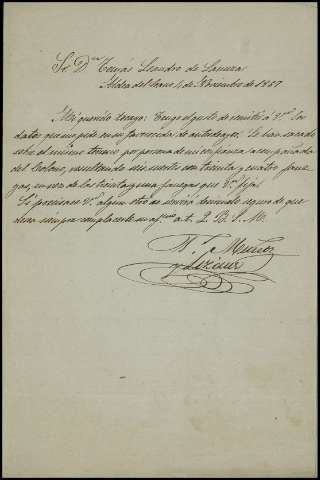 Sr. Dn. Tomás Leandro de
Aldea del Cano 4 de Noviembre de 1857
Mi querido Tengo el gusto de remitir á V. los
datos que me pide en su favorecida de antedeayer. Se han sacado
sobre el mismo terreno por persona de mi confianza acompañada
del Colono, resultando seis suertes con treinta y cuatro fane
gas, en vez de las treinta y una fanegas que V. fija.
Si precisase V. algun otro de envío demelo seguro de que
desea siempre complacerle su af. a. t. Q. B. S. M.
Muñoz
y